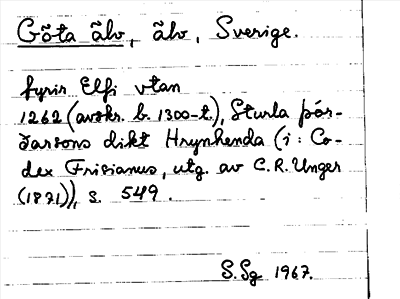 Göta älv, älv, Sverige.
fyrir Elfi vtan
1262 (avskr. b. 1300-t.), Sturla Þór-
ðarsons dikt Hrynhenda (i: Co-
dex Frisianus, utg. av C.R. Unger
(1871)), s. 549.
S.Sg 1967.